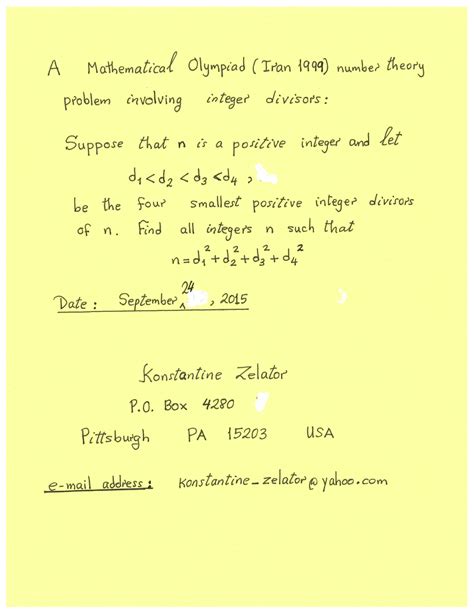 A Mathematical Olympiad (Iran 1999) number theory
problem involving integer divisors:
Suppose that n is a positive integer and let
d₁<d₂<d₃<d₄,
be the four smallest positive integer divisors
of n. Find all integers n such that
n=d₁²+d₂²+d₃²+d₄²
Date: September 24, 2015
Konstantine Zelator
P.O. Box 4280
Pittsburgh PA 15203 USA
e-mail address: konstantine_zelator@yahoo.com